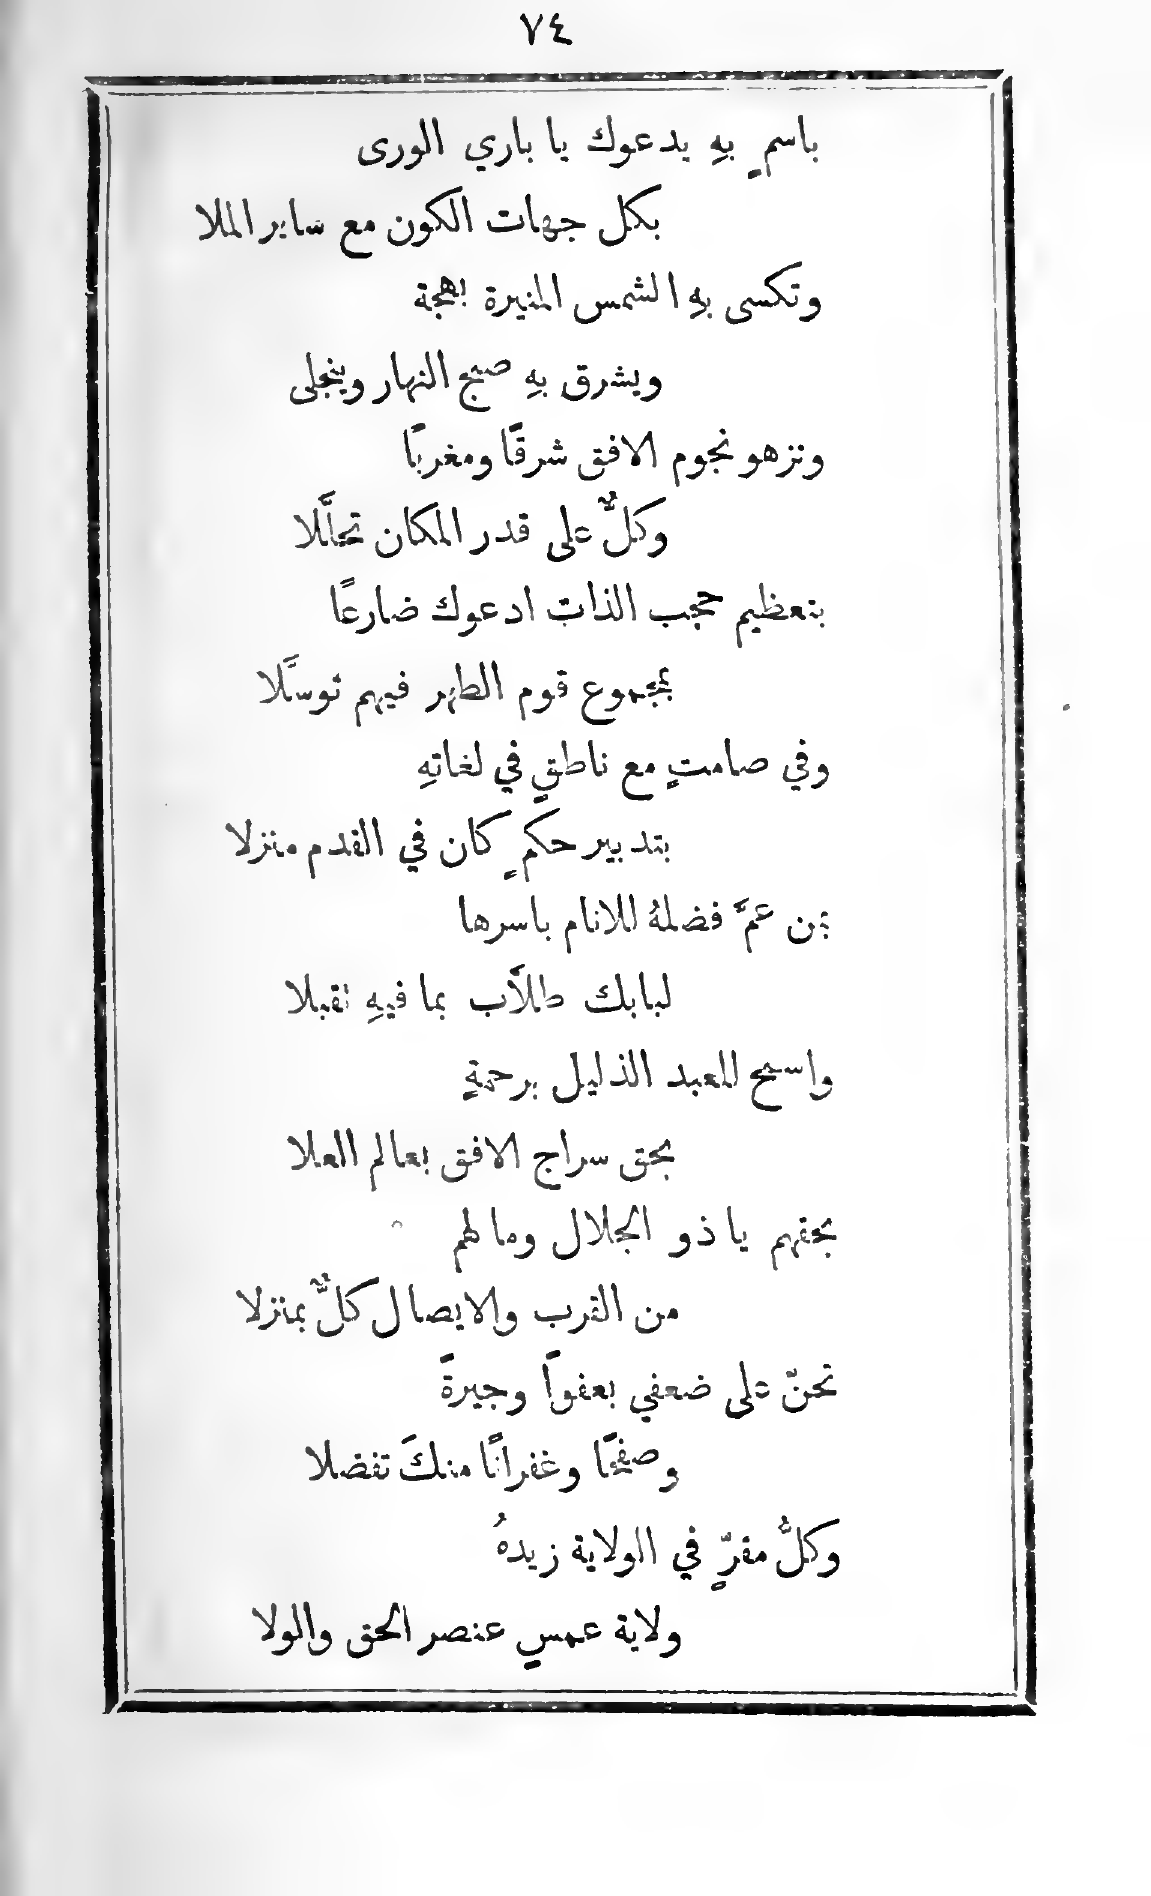 ٧٤
باسمٍ بهِ يدعوك يا باري الورى
بكل جهات الكون مع ساير الملا
وتكسى بهِ الشمس المنيرة بهجة
ويشرق بهِ صبح النهار وينجلى
وتزهو نجوم الافق شرقًا ومغربًا
وكلٌّ على قدر المكان تجلَّلا
بتعظيم حجب الذات ادعوك ضارعًا
بمجموع قوم الطهر فيهم توسَّلا
وفي صامتٍ مع ناطقٍ في لغاتهِ
بتدبير حكمٍ كان في القدم منزلا
بن عمَّ فضلهُ للانام باسرها
لبابك طلَّاب بما فيهِ تقبلا
واسمح للعبد الذليل برحمةٍ
بحق سراج الافق بعالم العلا
بحقهم يا ذو الجلال وما لهم
من القرب والايصال كلٌّ بمنزلا
تحنّ على ضعفي بعفوًا وجيرةً
وصفحًا وغفرانًا منكَ تفضلا
وكلُّ مقرٍّ في الولاية زيدهُ
ولاية عمسٍ عنصر الحق والولا